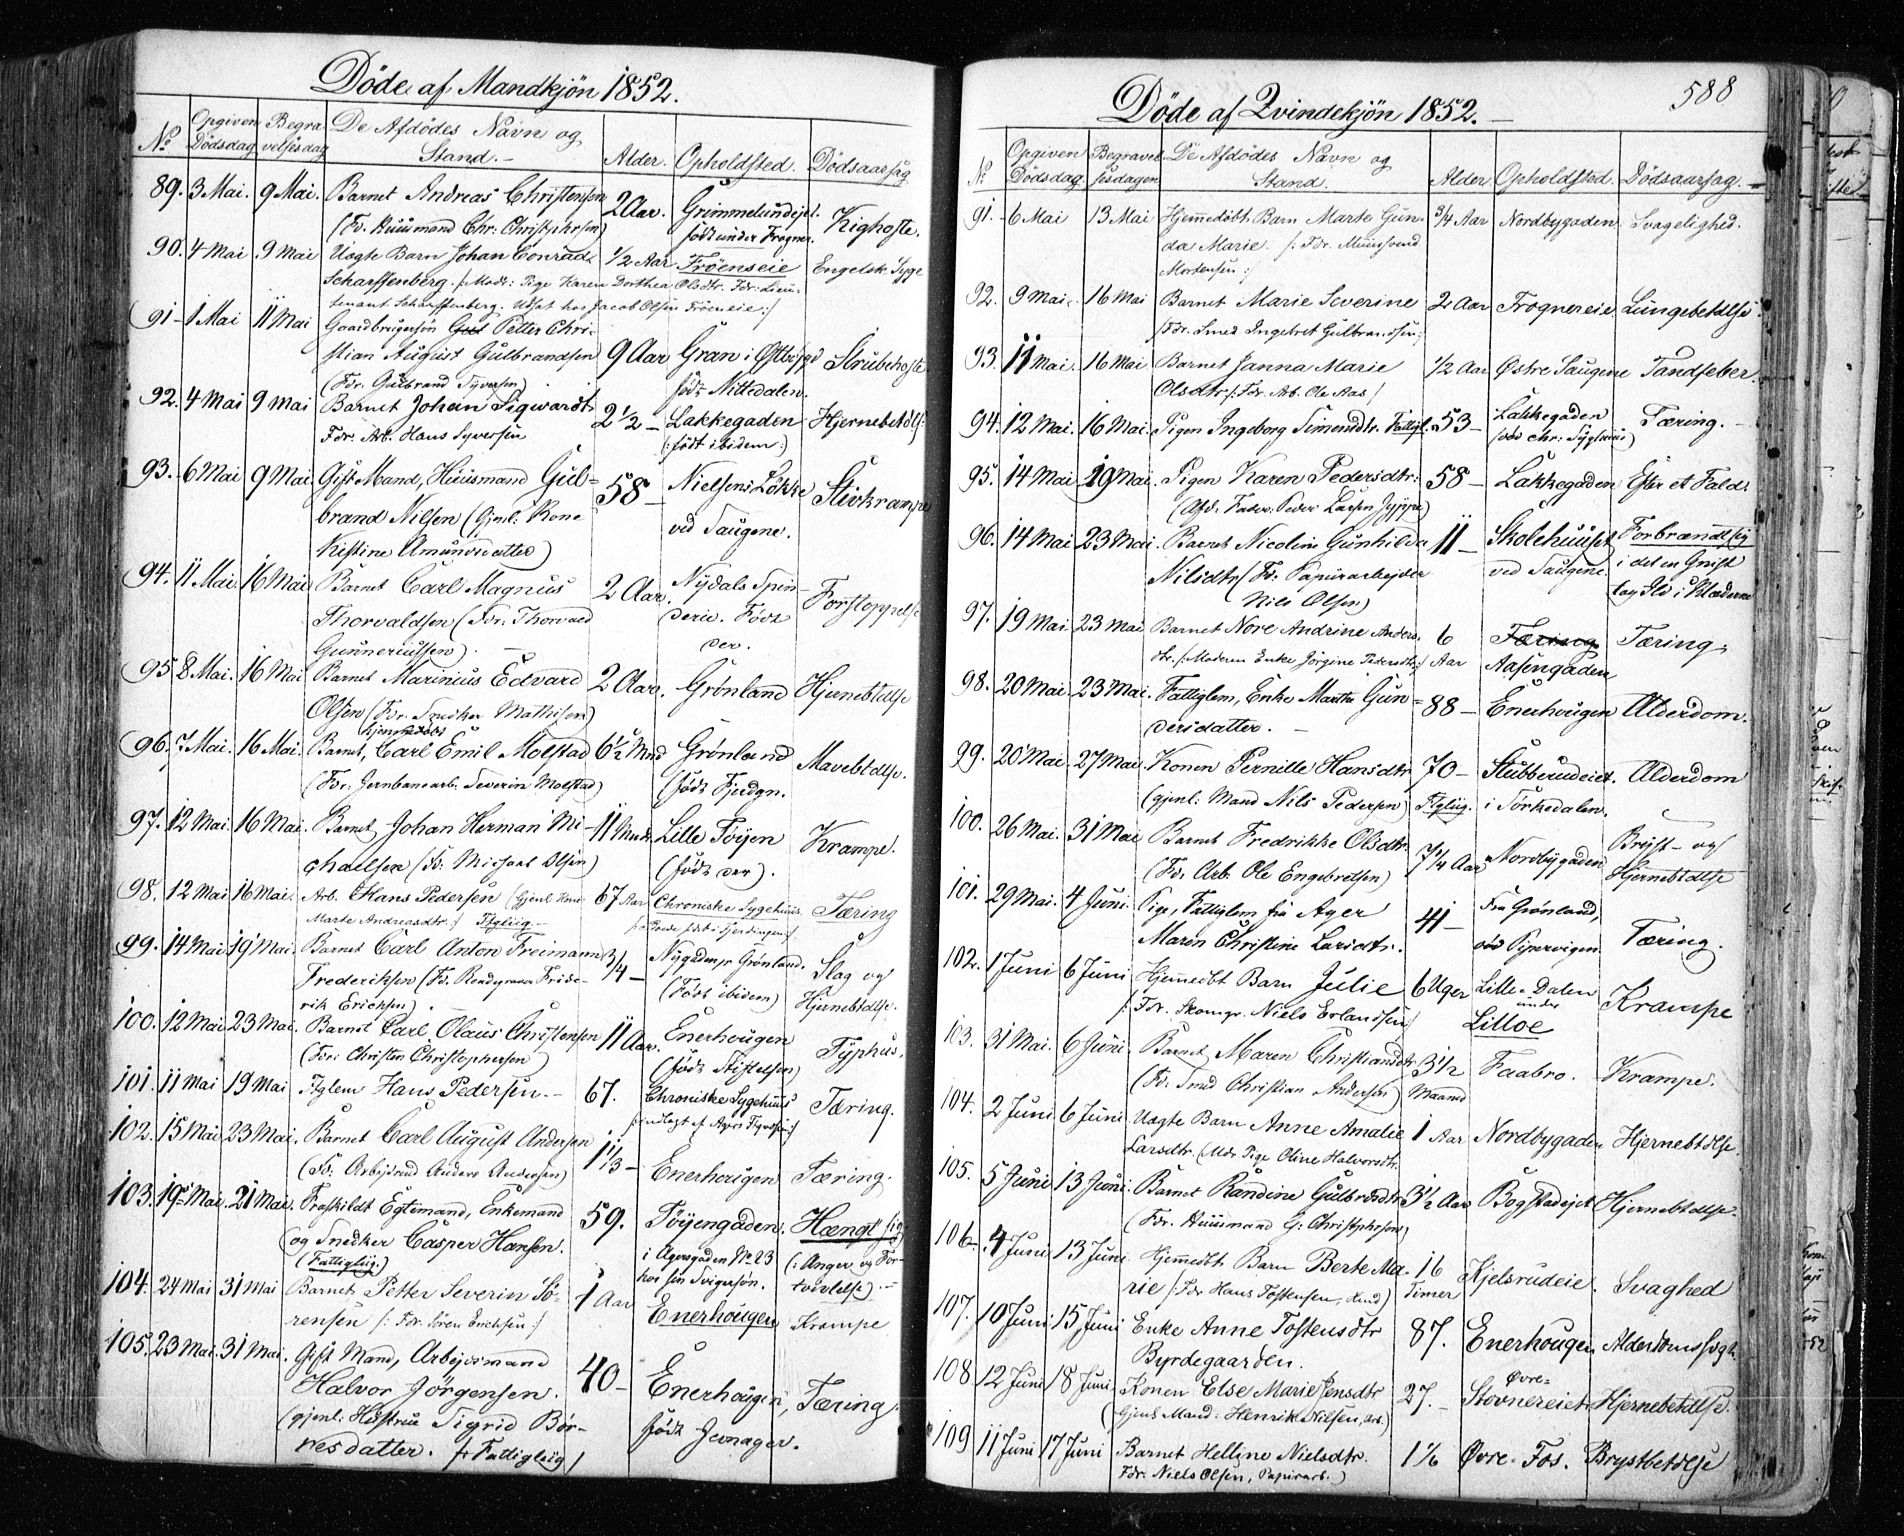 Döde af Mandkjön 1852.
No Opgiven Dödsdag Begravelsesdag De Afdödes Navn og Stand. Alder. Opholdsted. Dödsaarsag
89. 3 Mai. 9 Mai. Barnet Andreas Christensen 2 Aar. Grimmelundejet. Kighoste.
(Fr. Huusmand Chr: Christophersen) född under Frogner.
90. 4 Mai 9 Mai Uægte Barn Johan Conrad 1/2 Aar Fröenseie Engelsk Syge
Scharffenberg. /: Modr: Pige Karen Dorthea Olsdtr. Fdr: Lieu-
tenant Scharffenberg. Udsat hos Jacob Olsen Fröeneie :/
91 1 Mai 11 Mai Gaardbrugersön Petter Chri-
stian August Gulbrandsen 9 Aar Gran i Østbygd Strubehoste
(Fdr. Gulbrand Syversen) född Nittedalen.
92. 4 Mai 9 Mai Barnet Johan Sigwardt 2 1/2 Lakkegaden Hjernebetdls:
Fdr. Arb. Hans Syversen (: född ibidem :)
93. 6 Mai 9 Mai. Gift Mand, Huusmand Gul- 58 Nielsens Løkke Stivkrampe
brand Nilsen (Gjenl: Kone ved Saugene.
Kistine Amundsdatter)
94. 11 Mai. 16 Mai Barnet Carl Magnus 2 Aar. Nydals Spin- Forstoppelse
Thorvaldsen (Fdr: Thorvald derie. Född
Gunneriussen). der.
95 8 Mai. 16 Mai Barnet Marinius Edvard 2 Aar. Grønland Hjernebtdlse
Olsen (Fr. Snedker Mathisen)
hjemmedöbt
96. 7 Mai. 16 Mai. Barnet, Carl Emil Molstad 6 1/2 Mnd Grønland Mavebtdlse.
(Fdr. Jernbanearb. Severin Molstad) (född Fjerdgn.
97. 12 Mai. 16 Mai. Barnet, Johan Herman Mi- 11 Mndr Lille Töÿen Krampe.
chaelsen (Fd: Michael Olsen) (född der).
98. 12 Mai 16 Mai. Arb. Hans Pedersen (Gjenl. Kone 67 Aar Chroniske Sygehuus. Tæring
Marte Andreasdtr :/ Ftglig
99. 14 Mai 19 Mai Barnet Carl Anton Freimann 3/4 Nygaden pr Grønland. Slag og
Frederiksen (Fd. Rendegraver Fride- (Född ibidem) Hjernebtdlse.
rik Ericksen).
100. 12 Mai 23 Mai. Barnet Carl Olaus Christensen 11 Aar. Enerhougen Typhus.
(Fdr: Christen Christophersen) (född Stiftelsen)
101. 11 Mai 19 Mai Ftglem Hans Pedersen. 67. Chroniske Sygehuus Tæring.
102. 15 Mai 23 Mai. Barnet Carl August Andersen 1 1/3 Enerhougen Tæring.
(Fd. Arbejdsmd Anders Andersen)
103. 19 Mai. 21 Mai. Fraskildt Egtemand, Enkemand 59. Töyengaden. Hængt sig
og Snedker Casper Hansen. i Agersgaden No 23 (: Anger og For-
(Fattiglig:) hos sin Svigersön. tvivlelse).
104. 24 Mai 31 Mai Barnet Petter Severin Sö- 1 Aar Enerhougen Krampe
rensen /: Fdr. Sören Ericksen :/
105. 23 Mai. 31 Mai. Gift Mand, Arbejdsmand 40 Enerhougen, Tæring.
Halvor Jörgensen. född Jevnager.
(gjenl: Hustrue Sigrid Bör-
resdatter. /: Fattiglig/
588
Döde af Qvindekjön 1852.
No Opgiven Dödsdag Begravelsesdagen De Afdödes Navn og Stand. Alder Opholdsted. Dödsaarsag.
91. 6 Mai 13 Mai Hjemmedöbt Barn Marte Gun- 3/4 Aar Nordbygaden Svagelighed.
da Marie. /: Fdr.
Mortensen :/
92. 9 Mai. 16 Mai Barnet Marie Severine 2 Aar Frognereie Lungebetdlse
/Fdr. Smed Ingebret Gulbrandsen :/
93. 11 Mai. 16 Mai Barnet Janna Marie 1/2 Aar Østre Saugene Tandfeber.
Olsdtr /: Fdr. Arb. Ole Aas /
94. 12 Mai. 16 Mai. Pigen Ingeborg Simensdtr. Fattigl. 53 Lakkegaden Tæring.
95. 14 Mai 19 Mai. Pigen Karen Pedersdtr: 58 Lakkegaden Efter et Fald
(Afd. Fader: Peder Larsen
96. 14 Mai 23 Mai. Barnet Nicoline Gunhilda 11 Skolehuuset Forbrændt sig
Nilsdtr (Fr. Papirarbejder ved Saugene. i det en Gnist
Nils Olsen) tog Ild i Klæderne
97. 19 Mai 23 Mai Barnet Nore Andrine Anders- 6 Tæring Tæring,
dtr. /: Moderen Enke Jörgine Pedersdtr :/ Aar Aasengaden
98. 20 Mai 23 Mai. Fattiglem, Enke Martha Gun- 88 Enerhougen Alderdom.
dersdatter.
99. 20 Mai. 27 Mai. Konen Pernille Hansdtr 70 Stubberudeiet. Alderdom
(gjenl: Mand Nils Pedersen) Ftglig. i Sörkedalen.
100. 26 Mai. 31 Mai Barnet Fredrikke Olsdtr. 7 1/4 Aar Nordbygaden Bryst- og
(Fdr. Arb. Ole Engebretsen) Hjernebtdlse
101. 29 Mai. 4 Juni. Pige, Fattiglem fra Ager 41 Fra Grønland, Tæring.
Maren Christine Larsdtr. Pipervigen.
102. 1 Juni 6 Juni. Hjemmedbt Barn Julie 6 Uger Lille-Dalen Krampe
/: Fdr. Skomgr. Niels Erlandsen :/ under Lilloe
103. 31 Mai. 6 Juni. Barnet Maren Christiansdtr 3 1/2 Faabro. Krampe.
(Fd. Smed Christian Andersen) Maaned
104. 2 Juni 6 Juni Uægte Barn Anne Amalie 1 Aar Nordbygaden Hjernebtdlse.
Larsdtr. (Mdr Pige Oline Halvorsdtr.
105. 5 Juni 13 Juni. Barnet Randine Gulbrdsdtr 3 1/2 Aar Bogstadejet Hjernebtdlse.
(Fdr. Huusmand G: Christophersen)
106. 4 Juni 13 Juni Hjemmedbt Barn Berte Ma- 16 Kjelsrudeie. Svaghed
rie /: Fdr Hans Tostensen, Hmd) Timer
107. 10 Juni 15 Juni Enke Anne Tostensdtr 87. Enerhougen Alderdomssvgh.
Byrdegaarden.
108 12 Juni 18 Juni Konen Else Marie Jensdtr 27. Øvre- Stovnereiet Hjernebetdlse.
(Gjenl Mand: Henrik Nilsen, arb.)
109 11 Juni 17 Juni Barnet Helline Nielsdtr. 1 1/6 Øvre-Fos. Brystbetdlse
Fdr. Niels Olsen, Papirarb.)